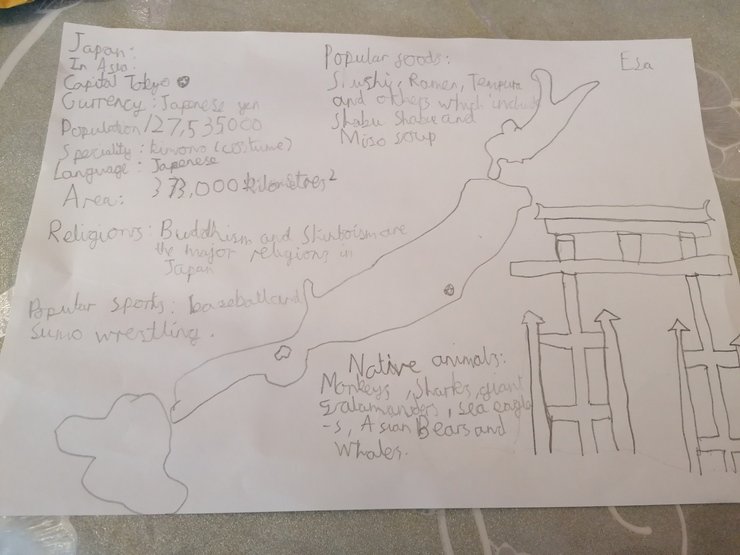 Japan:
In Asia
Capital Tokyo
Currency: Japanese yen
Population 127,535000
Speciality: kimono (costume)
Language: Japanese
Area: 373,000 kilometres²
Religions: Buddhism and Shintoism are
the major religions in
Japan
Popular sports: baseball and
sumo wrestling.
Popular foods:
Sushi, Ramen, Tempura
and others which include
Shabu Shabu and
Miso soup
Esa
Native animals:
Monkeys, Sharks, giant
salamanders, sea eagle
-s, Asian Bears and
Whales.